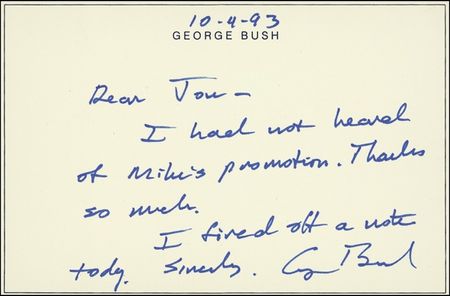 10-4-93
GEORGE BUSH
Dear Tom –
I had not heard
of Mike's promotion. Thanks
so much.
I fired off a note
today. Sincerely. George Bush